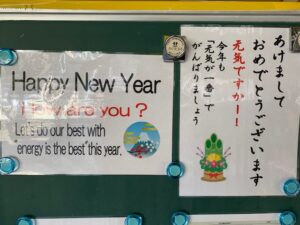 Happy New Year
How are you ?
Let's do our best with
"energy is the best" this year.
あけまして
おめでとうございます
元気ですか！！
今年も
「元気が一番」で
がんばりましょう